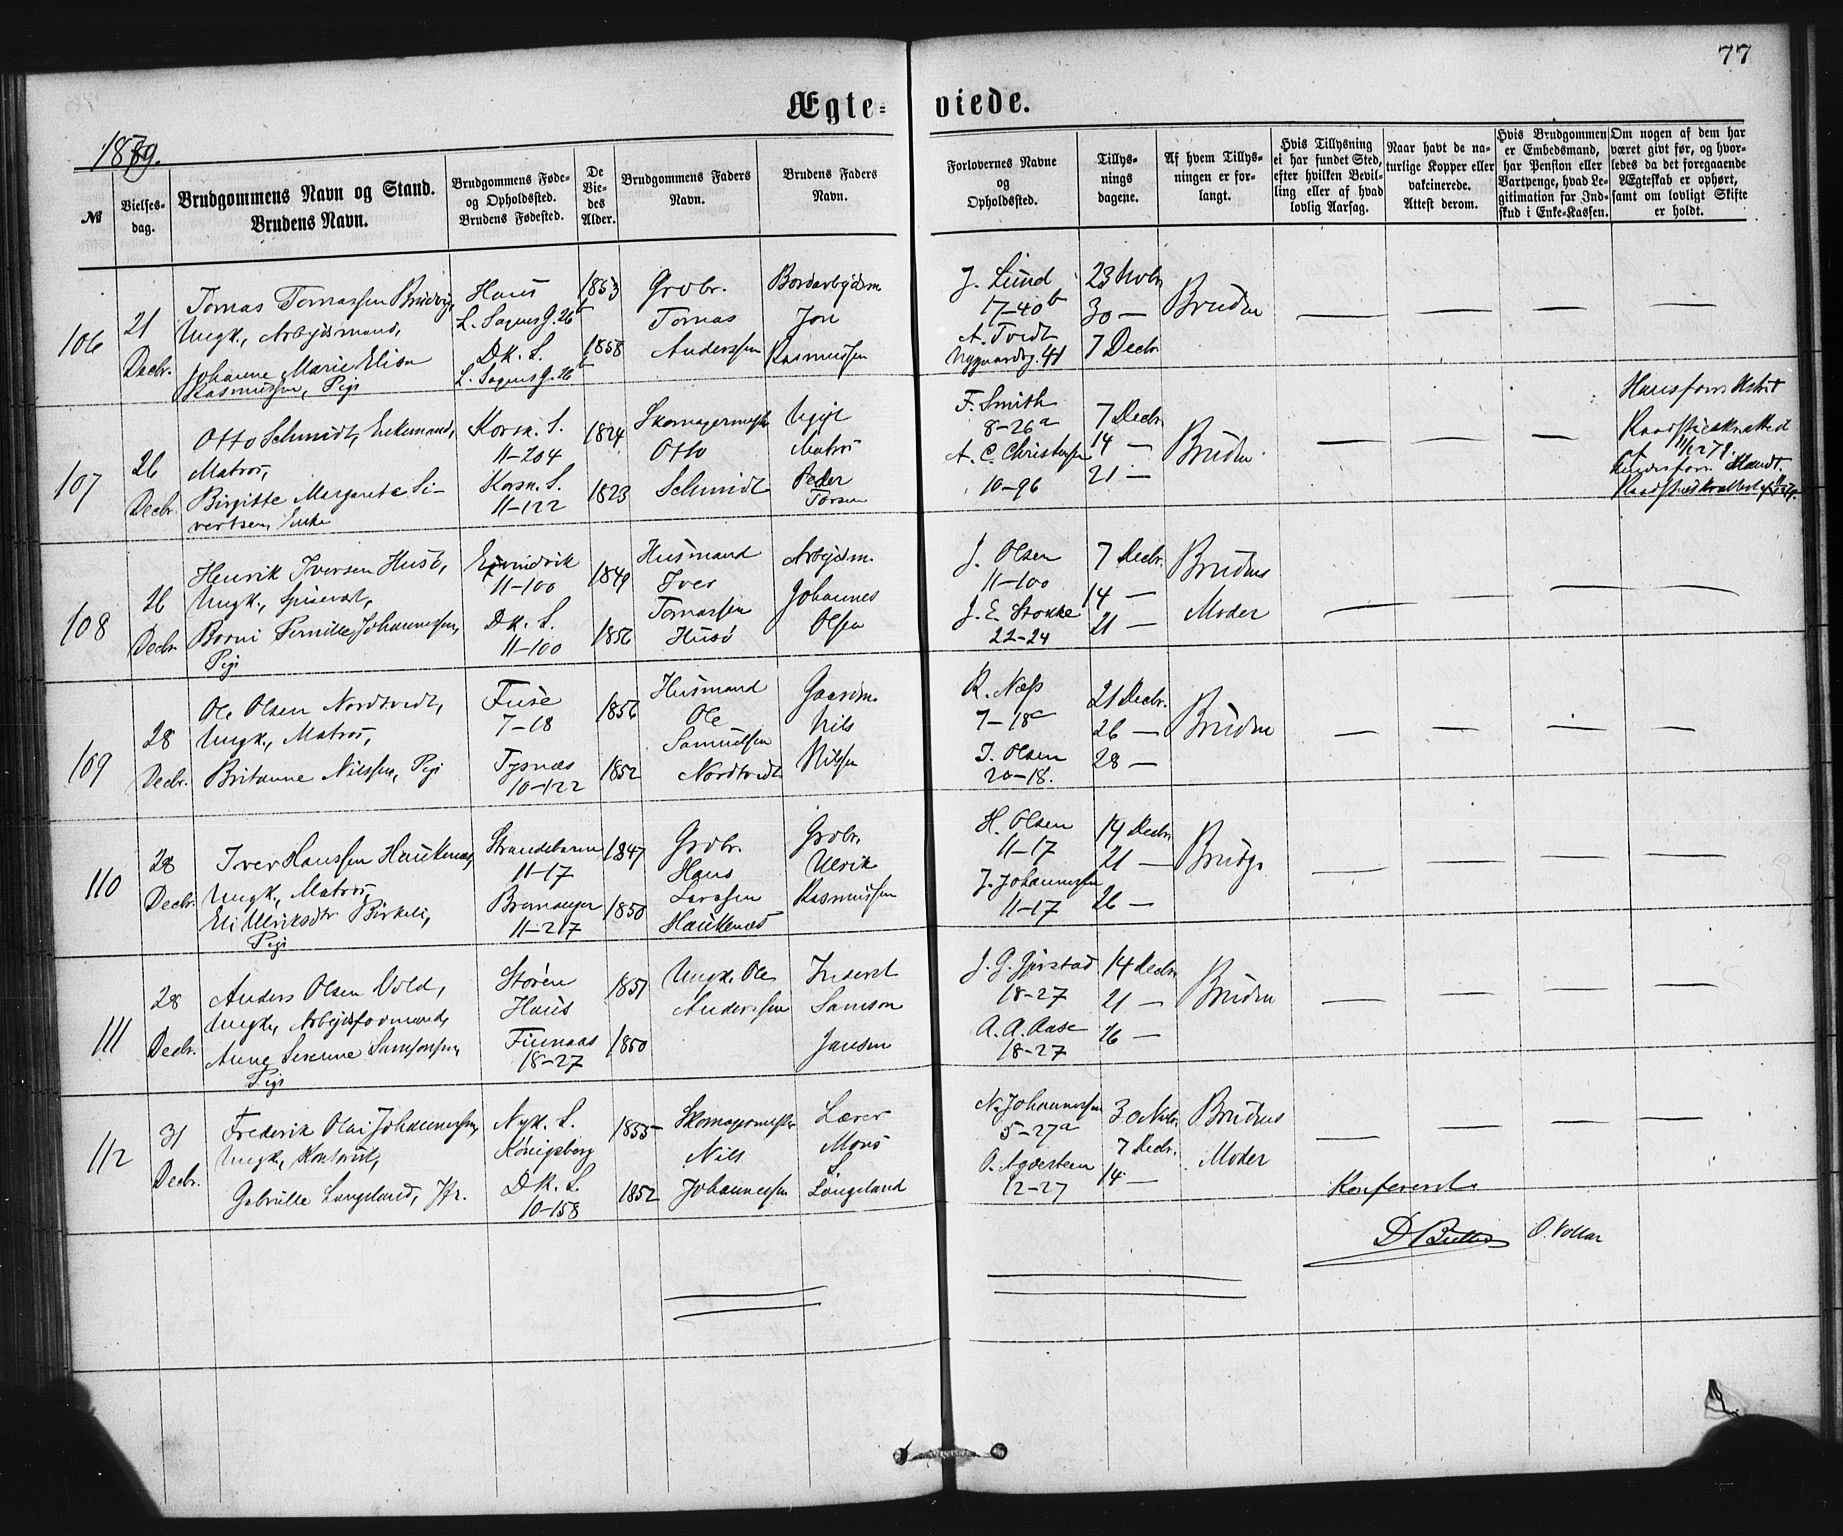 77
Ægte= viede.
1879.
№
Vielses-
dag.
Brudgommens Navn og Stand.
Brudens Navn.
Brudgommens Føde-
og Opholdssted.
Brudens Fødested.
De
Vie-
des
Alder.
Brudgommens Faders
Navn.
Brudens Faders
Navn.
Forlovernes Navne
og
Opholdssted.
Tillys-
nings
dagene.
Af hvem Tillys-
ningen er for-
langt.
Hvis Tillysning
ei har fundet Sted,
efter hvilken Bevil-
ling eller af hvad
lovlig Aarsag.
Naar havt de na-
turlige Kopper eller
vakcinerede.
Attest derom.
Hvis Brudgommen
er Embedsmand,
har Pension eller
Vartpenge, hvad Le-
gitimation for Ind-
skud i Enke-Kassen.
Om nogen af dem har
været givt før, og hvor-
ledes da det foregaaende
Ægteskab er ophørt,
samt om lovligt Skifte
er holdt.
106
21
Decbr.
Tomas Tomassen
Ungk., Arbejdsmand,
Johanne Marie Elisa
Rasmussen, Pige
Haus
DK. S.
1853
1858
Grdbr.
Tomas
Anderssen
Jon
Rasmussen
J. Lund
17-40b
A. Tvedt
Nygaardsg. 41
23 Novbr.
30 —
7 Decbr.
Bruden
— — — —
107
26
Decbr.
Otto Schmidt, Enkemand,
Matros,
Birgitte Margarete Si-
vertsen, Enke
Korsk. S.
11-204
Korsk. S.
11-122
1824
1823
Skomagermester
Otto
Schmidt
Matros
Peder
F. Smith
8-26a
A. C. Christensen
10-96
7 Decbr.
14 —
21 —
Bruden
— — —
108
26
Decbr.
Henrik Iversen Husö,
Ungk.,
Pernille Johannessen,
Pige
11-100
DK. S.
11-100
1849
1856
Husmand
Iver
Tomassen
Husö
Arbejdsm.
Johannes
Olsen
J. Olsen
11-100
J. E. Stokke
22-24
7 Decbr.
14 —
21 —
Brudens
Moder
— — — —
109
28
Decbr.
Ole Olsen Nordtvedt,
Ungk., Matros,
Britanne Nilssen, Pige
Fuse
7-18
Tysnæs
10-122
1856
1852
Husmand
Ole
Samuelsen
Nordtvedt
Gaardm.
Nils
Nilsen
R. Næss
7-18c
T. Olsen
20-18.
21 Decbr.
26 —
28 —
Bruden
— — — —
110
28
Decbr.
Iver Hanssen Haukenæs,
Ungk., Matros,
Eli Ulriksdtr Birkeli,
Pige
Strandebarm
11-17
Bremanger
11-217
1847
1850
Grdbr.
Hans
Larssen
Haukenæs
Grdbr.
Ulrik
Rasmussen
H. Olsen
11-17
J. Johannessen
11-17
14 Decbr.
21 —
26 —
Brudg.
— — — —
111
28
Decbr.
Anders Olsen Vold,
Ungk., Arbejdsformand,
Anne Serine Samsonsen,
Pige
Støren
Haus
Finnaas
18-27
1851
1850
Ungk. Ole
Anderssen
Inderst
Samson
Jansen
J. G. Gjerstad
18-27
A. A. Aase
18-27
14 Decbr.
21 —
Bruden
— — — —
112
31
Decbr.
Frederik Olai Johannessen,
Ungk., Kontorist,
Gabrielle Langeland, Jfr.
Nyk. S.
Königsberg
DK. S.
10-158
1855
1852
Skomagermester
Nils
Johannessen
Lærer
Mons
L.
Langeland
N. Johannessen
5-27a
O. Agdesteen
12-27
30 Novbr.
7 Decbr.
14 —
Brudens
Moder
— — — —
Konfereret.